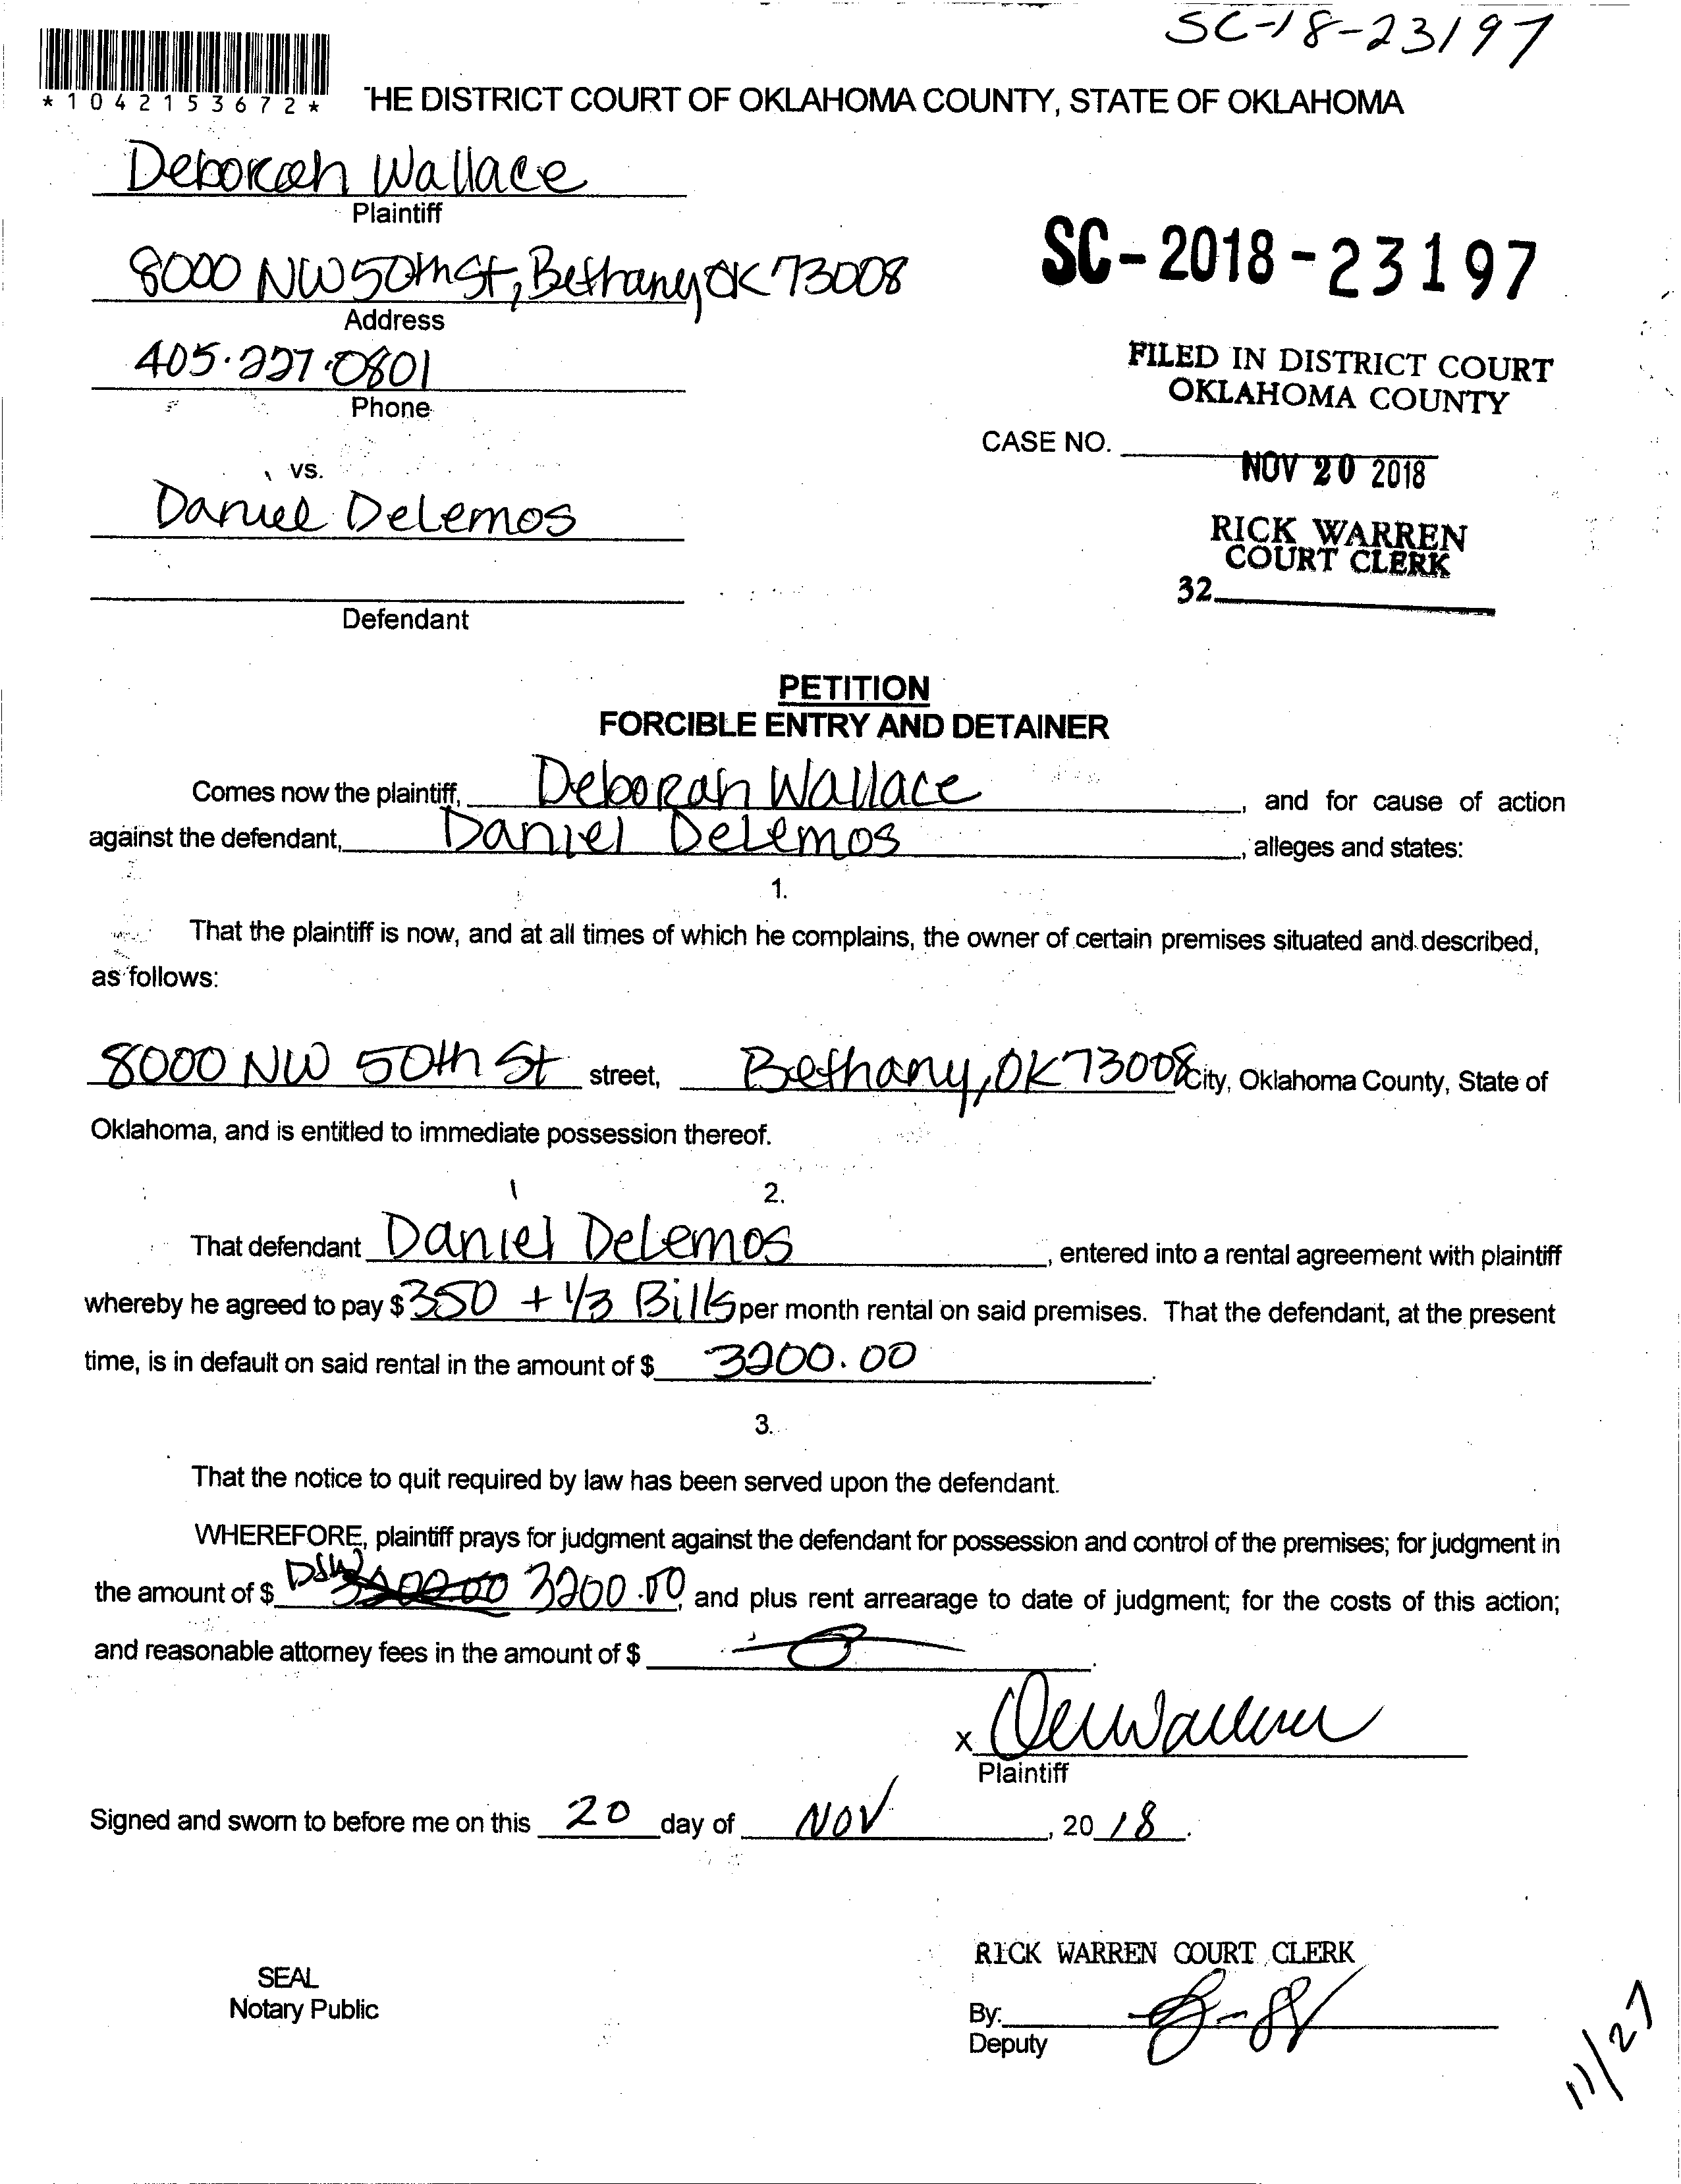 SC-18-23197
*1042153672*
THE DISTRICT COURT OF OKLAHOMA COUNTY, STATE OF OKLAHOMA
Deborah Wallace
Plaintiff
8000 NW 50th St, Bethany OK 73008
SC-2018-23197
Address
405.227.0801
Phone
FILED IN DISTRICT COURT
OKLAHOMA COUNTY
CASE NO.
NOV 20 2018
vs.
Daniel DeLemos
RICK WARREN
COURT CLERK
32
Defendant
PETITION
FORCIBLE ENTRY AND DETAINER
Comes now the plaintiff, Deborah Wallace, and for cause of action
against the defendant, Daniel DeLemos, alleges and states:
1.
That the plaintiff is now, and at all times of which he complains, the owner of certain premises situated and described,
as follows:
8000 NW 50th St street, Bethany, OK 73008 City, Oklahoma County, State of
Oklahoma, and is entitled to immediate possession thereof.
2.
That defendant Daniel DeLemos, entered into a rental agreement with plaintiff
whereby he agreed to pay $ 350 + 1/3 Bills per month rental on said premises. That the defendant, at the present
time, is in default on said rental in the amount of $ 3200.00.
3.
That the notice to quit required by law has been served upon the defendant.
WHEREFORE, plaintiff prays for judgment against the defendant for possession and control of the premises; for judgment in
the amount of $ DSW 3200.00 3200.00, and plus rent arrearage to date of judgment; for the costs of this action;
and reasonable attorney fees in the amount of $ 0.
x
Plaintiff
Signed and sworn to before me on this 20 day of NOV, 2018.
RICK WARREN COURT CLERK
SEAL
Notary Public
By:
Deputy
11/27